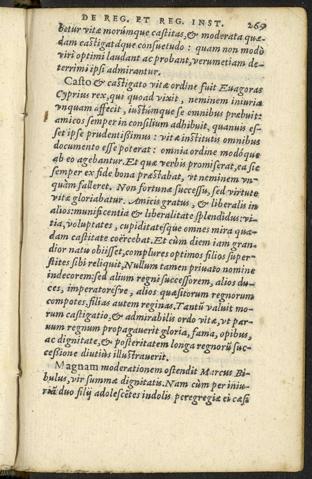 DE REG. ET REG. INST. 269
betur vitæ morúmque castitas, & moderata quæ-
dam castigatáque consuetudo: quam non modò
viri optimi laudant ac probant, verumetiam de-
terrimi ipsi admirantur.
Casto & castigato vitæ ordine fuit Euagoras
Cyprius rex, qui quoad vixit, neminem iniuria
vnquam affecit, iustúmque se omnibus præbuit:
amicos semper in consilium adhibuit, quanuis es-
set ipse prudentissimus: vitæ institutis omnibus
documento esse poterat: omnia ordine modóque
ab eo agebantur. Et quæ verbis promiserat, ea sic
semper ex fide bona præstabat, vt neminem vn-
quàm falleret. Non fortunæ successu, sed virtute
vitæ gloriabatur. Amicis gratus, & liberalis in
alios: munificentia & liberalitate splendidus: vi-
tia, voluptates, cupiditatésque omnes mira qua-
dam castitate coërcebat. Et cùm diem iam gran-
dior natu obiisset, complures optimos filios super-
stites sibi reliquit, Nullum tamen priuato nomine
indecorem: sed alium regni successorem, alios du-
ces, imperatorésve, alios quæsitorum regnorum
compotes, filias autem reginas. Tantũ valuit mo-
rum castigatio, & admirabilis ordo vitæ, vt par-
uum regnum propagauerit gloria, fama, opibus,
ac dignitate, & posteritatem longa regnorũ suc-
cessione diutiùs illustrauerit.
Magnam moderationem ostendit Marcus Bi-
bulus, vir summæ dignitatis. Nam cùm per iniu-
riã duo filij adolescẽtes indolis peregregiæ ei cæsi